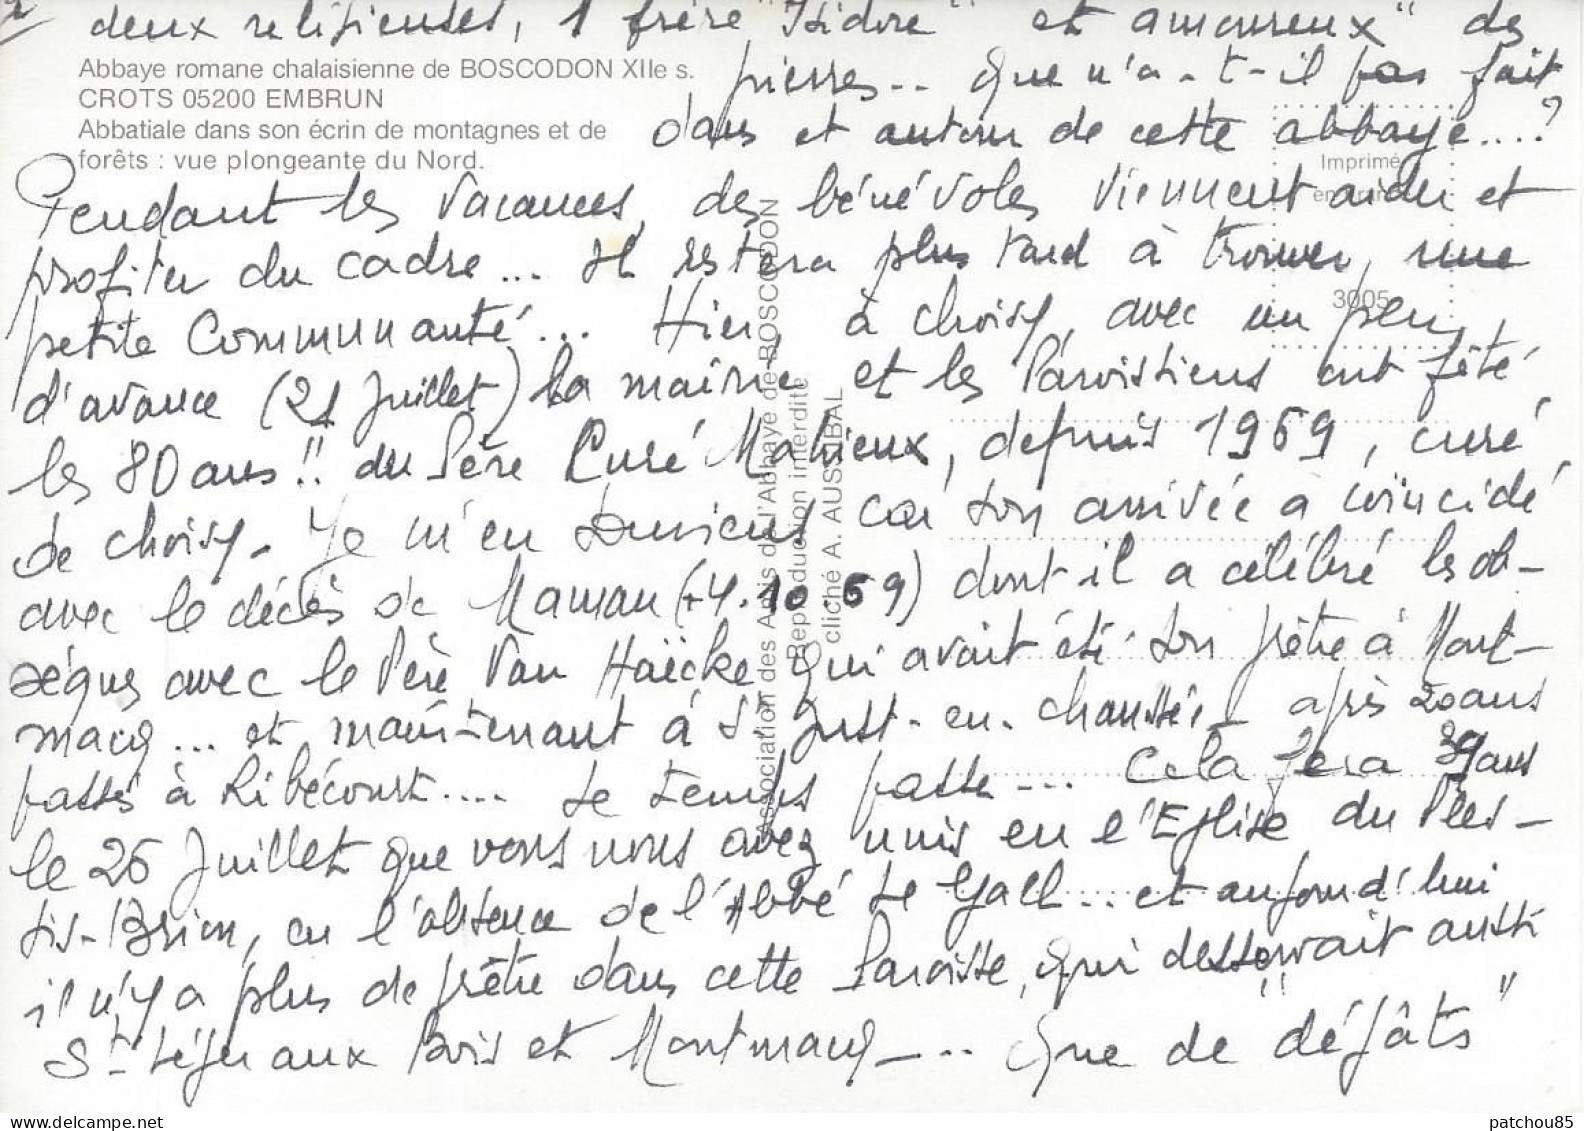 deux religieuses, 1 frère "Isidore" et amoureux" des
Abbaye romane chalaisienne de BOSCODON XIIe s.
CROTS 05200 EMBRUN
Abbatiale dans son écrin de montagnes et de
forêts : vue plongeante du Nord.
pierres... que n'a-t-il pas fait
dans et autour de cette abbaye....?
Imprimé
Pendant les vacances, des bénévoles viennent aider et
profiter du cadre... Il restera plus tard à trouver, une
3005
petite Communauté... Hier, à choisy, avec un peu
d'avance (21 Juillet) la mairie et les Paroissiens ont fêté
les 80 ans!! du Père Curé Mahieux, depuis 1969, curé
de choisy. Je m'en souviens car son arrivée a coïncidé
avec le décès de Maman (+4.10.69) dont il a célébré les ob-
sèques avec le Père Van Haëcke qui avait été son prêtre à Mont-
macq... et maintenant à St Just-en-chaussée - après 20 ans
passés à Ribécourt.... Le temps passe... Cela fera 39 ans
le 26 Juillet que vous nous avez unis en l'Eglise du Ples-
sis-Brion, en l'absence de l'Abbé Le Gall... et aujourd'hui
il n'y a plus de prêtre dans cette Paroisse, qui desservait aussi
St Léger aux Bois et Montmacq-... Que de "dégâts"
Association des Amis de l'Abbaye de BOSCODON
Reproduction interdite
cliché A. AUSSIBAL
delcampe.net
patchou85